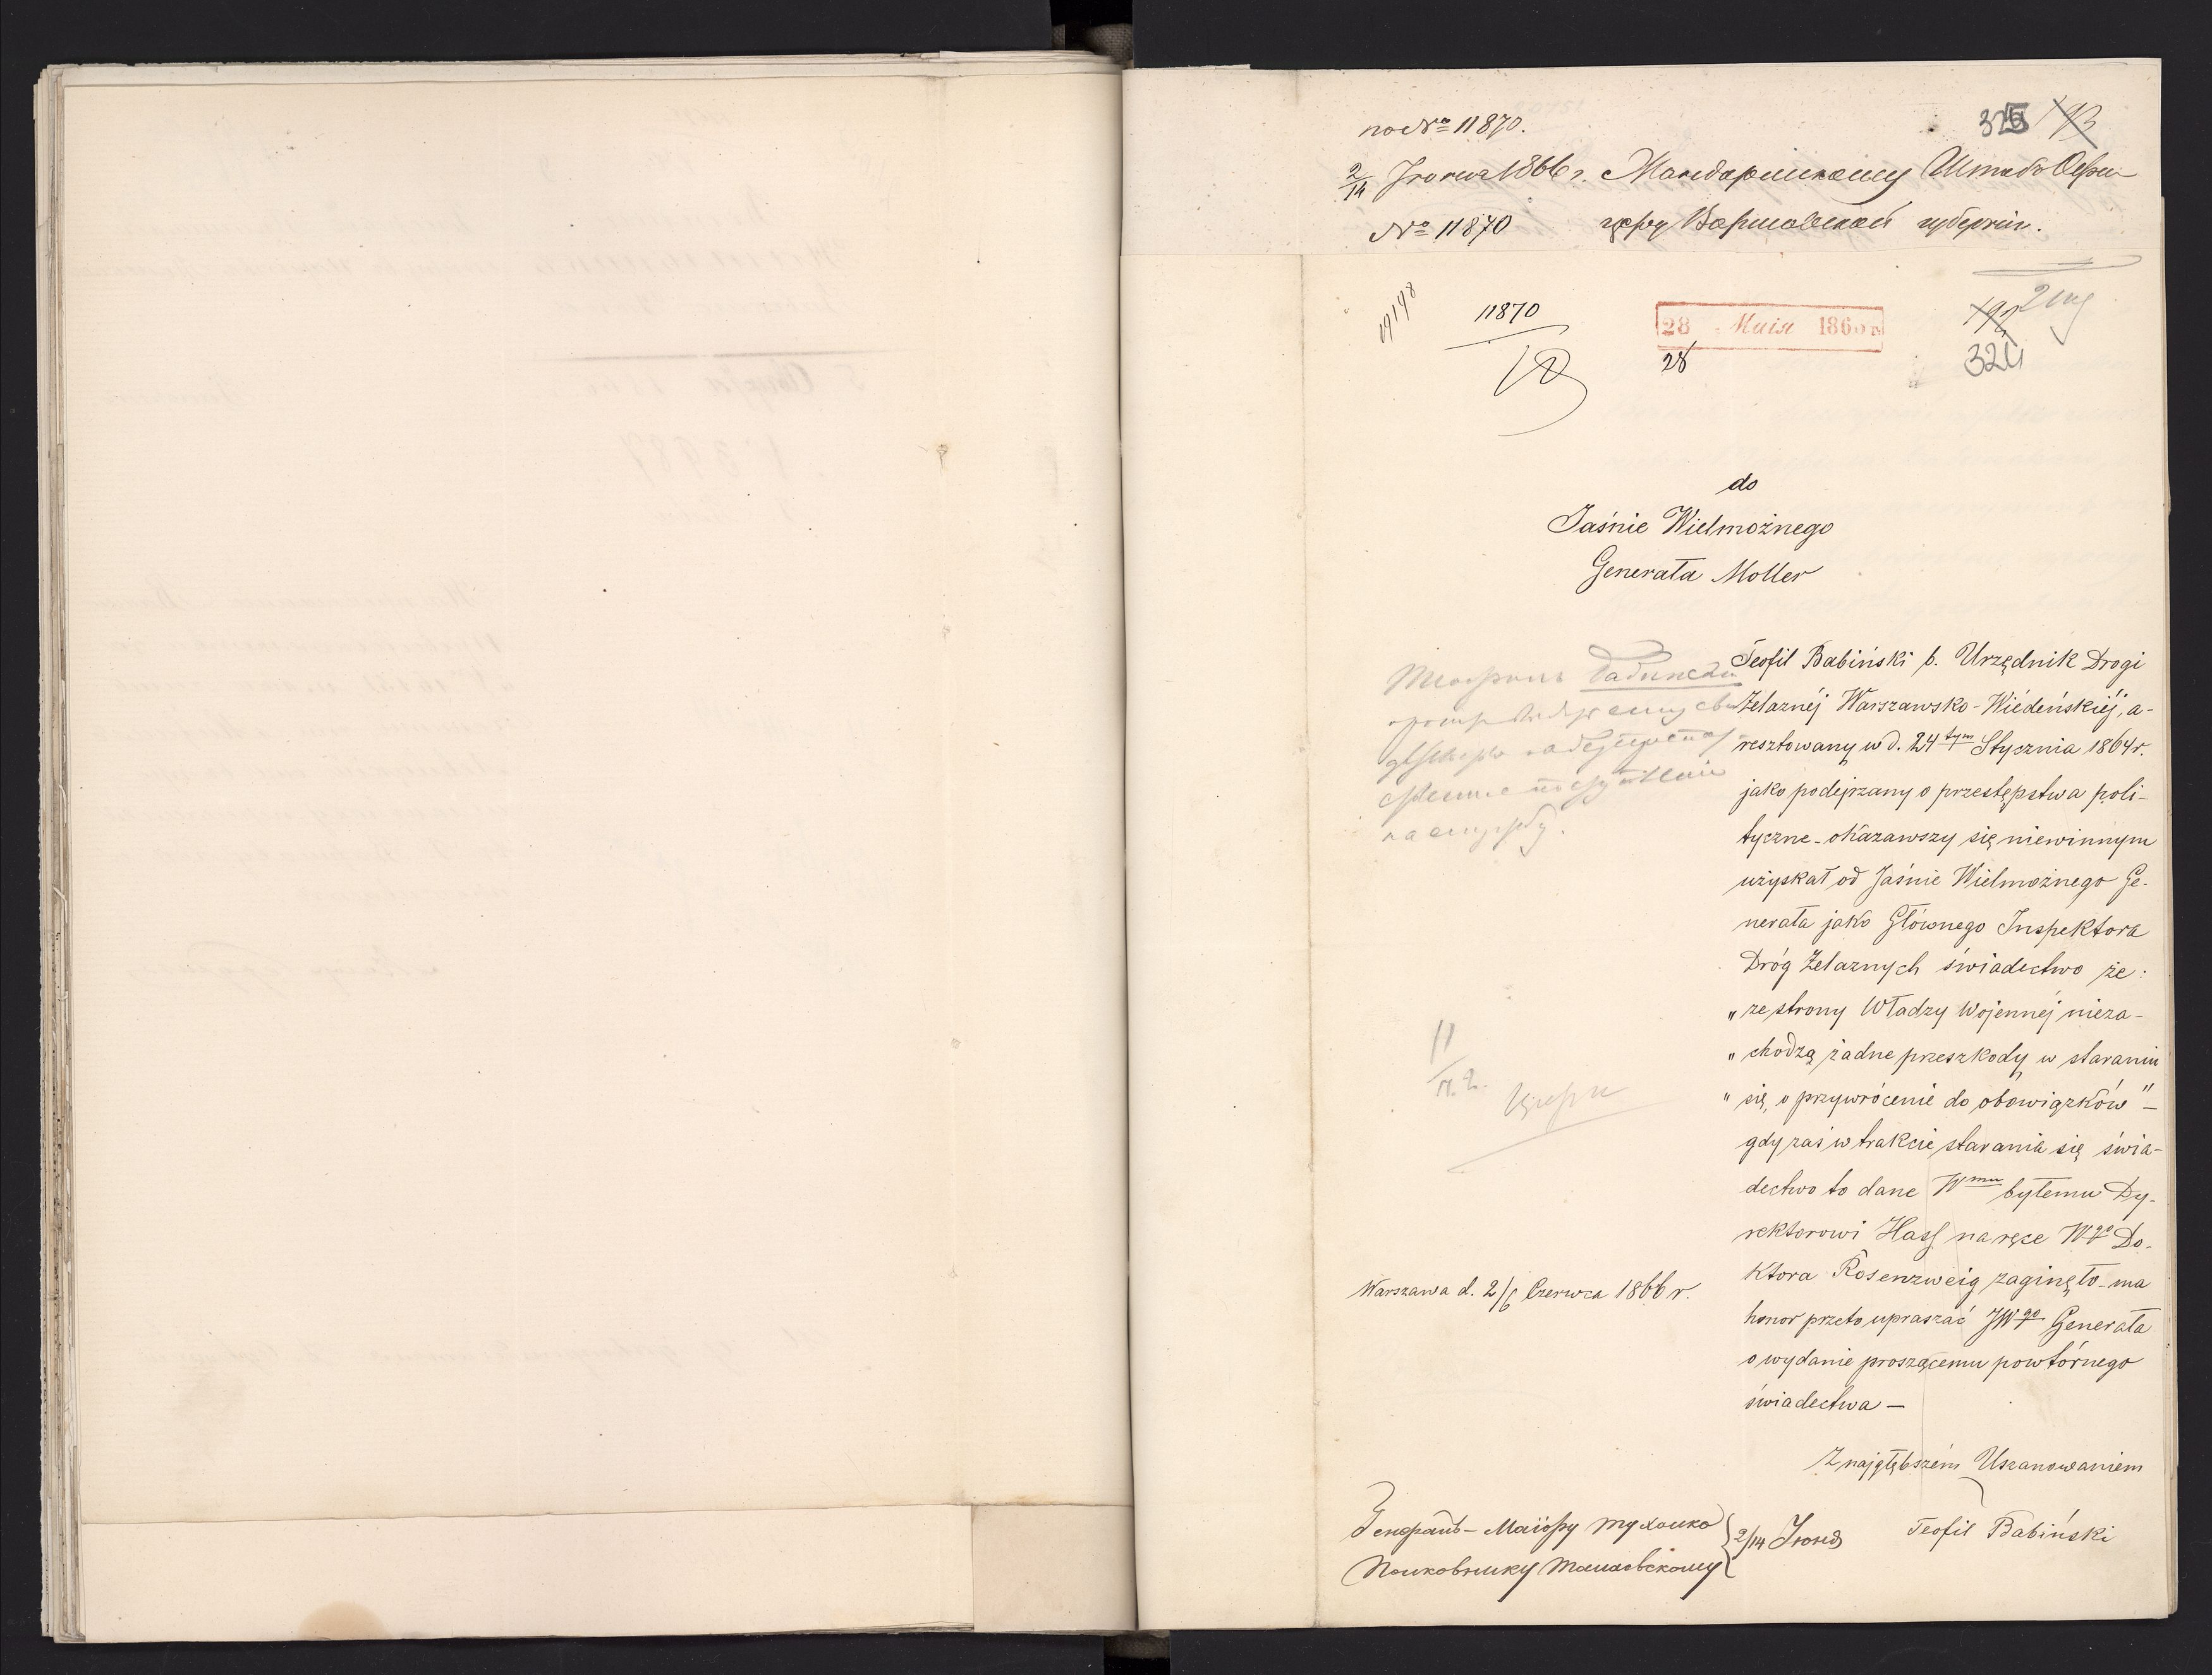 по № 11870.
325 193
2/14 Іюня 1866 г. Жандармскому Штабъ Офи-
№ 11870 церу Варшавской губерніи.
19198 11870
28 Маія 1866 г.
28
192
324
do
Jaśnie Wielmożnego
Generała Moller
Teofil Babiński b. Urzędnik Drogi
Żelaznéj Warszawsko-Wiédeńskiéj, a-
resztowany w d. 24 tym Stycznia 1864 r.
jako podejrzany o przestępstwa poli-
tyczne - okazawszy się niewinnym
uzyskał od Jaśnie Wielmożnego Ge-
nerała jako Głównego Inspektora
Dróg Żelaznych świadectwo że:
„ ze strony Władzy Wojennéj nieza-
„ chodzą żadne przeszkody w staraniu
„ się, o przywrócenie do obowiązków" —
gdy zaś w trakcie starania się świa-
dectwo to dane Wmu byłemu Dy-
rektorowi Hass na ręce Wgo Do-
ktora Rosenzweig zaginęło - ma
honor przeto upraszać JWgo Generała
o wydanie proszącemu powtórnego
świadectwa —
Warszawa d. 2/6 Czerwca 1866 r.
Z najgłębszém Uszanowaniem
Teofil Babiński
Генералъ-Маіору Тухолко
Полковнику } 2/14 Іюня